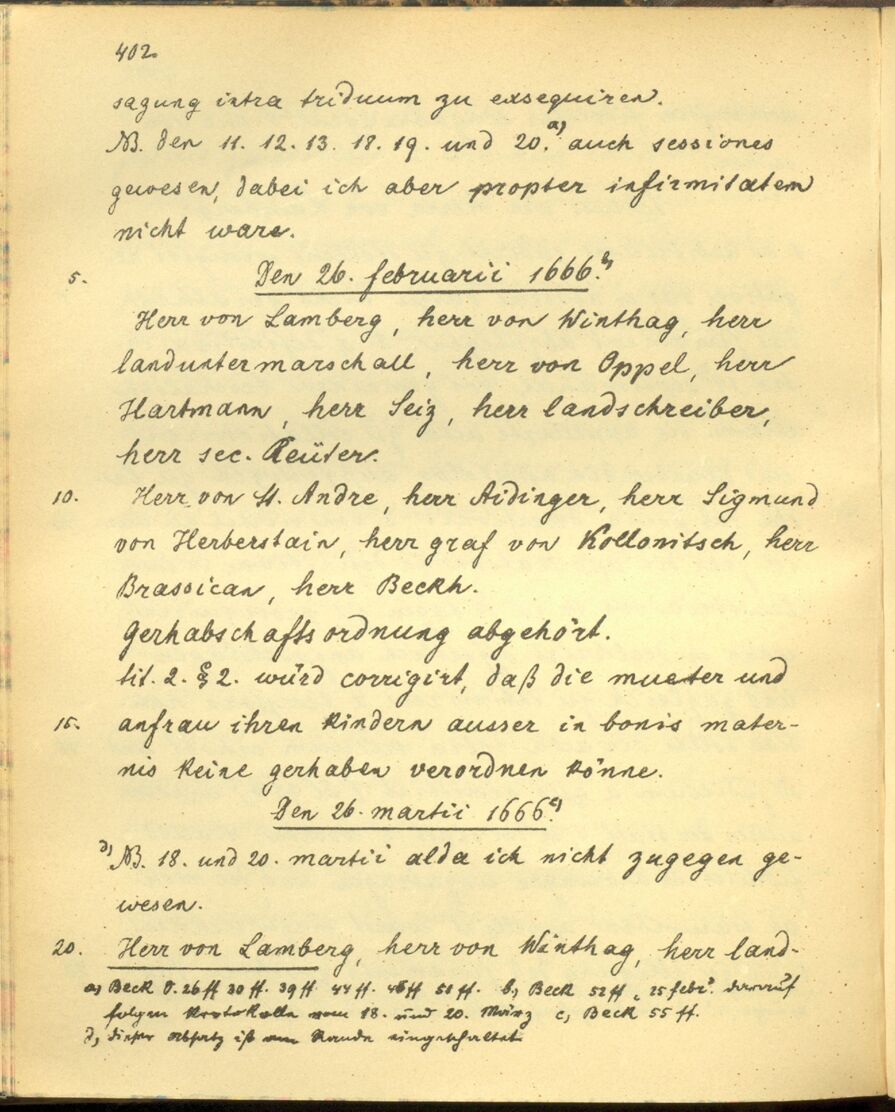 402.
sagung intra triduum zu exsequiren.
NB. den 11. 12. 13. 18. 19. und 20.a) auch sessiones
gewesen, dabei ich aber propter infirmitatem
nicht ware.
5. Den 26. februarii 1666.b)
Herr von Lamberg, herr von Winthag, herr
landuntermarschall, herr von Oppel, herr
Hartmann, herr Seiz, herr landschreiber,
herr sec. Reüter.
10. Herr von St. Andre, herr Aidinger, herr Sigmund
von Herberstain, herr graf von Kollonitsch, herr
Brassican, herr Beckh.
Gerhabschaftsordnung abgehört.
tit. 2. § 2. würd corrigirt, daß die mueter und
15. anfrau ihren kindern ausser in bonis mater-
nis keine gerhaben verordnen könne.
Den 26. martii 1666.c)
d) NB. 18. und 20. martii alda ich nicht zugegen ge-
wesen.
20. Herr von Lamberg, herr von Winthag, herr land-
a) Beck S. 26 ff 30 ff. 39 ff 44 ff. 46 ff 50 ff. b) Beck 52 ff, 25 febr. darauf
folgen Protokolle vom 18. und 20. März c) Beck 55 ff.
d) dieser Absatz ist am Rande eingeschaltet.